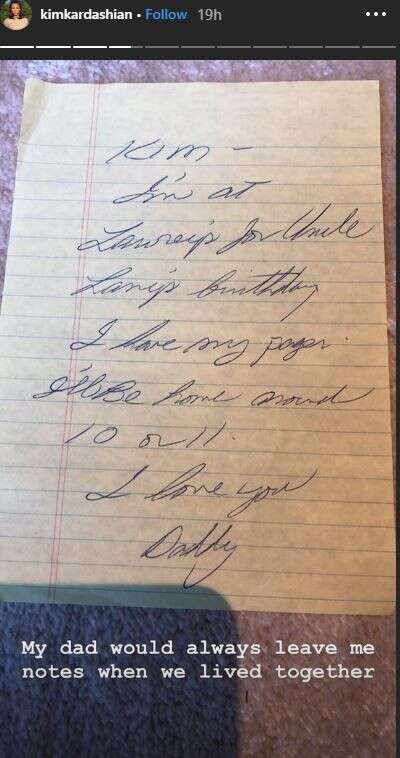 kimkardashian • Follow 19h
KIM -
I'm at
Lawrey's for Uncle
Larry's birthday
I have my pager.
I'll Be home around
10 or 11.
I love you
Daddy
My dad would always leave me
notes when we lived together